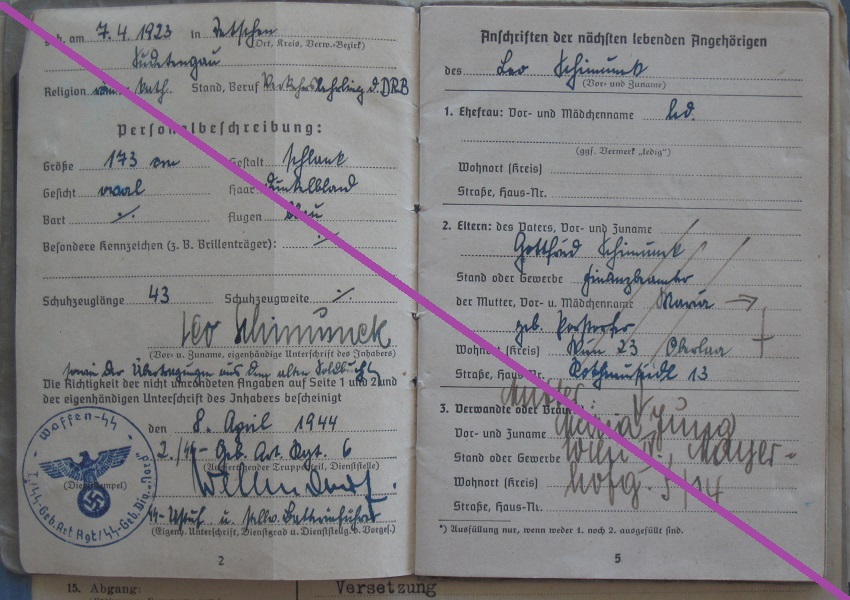 geb. am 7.4.1923 in Tetschen
(Ort, Kreis, Verw.-Bezirk)
Sudetengau
Religion röm. Kath. Stand, Beruf Verkehrslehrling d. DRB
Personalbeschreibung:
Größe 173 cm Gestalt schlank
Gesicht oval Haar dunkelblond
Bart ./. Augen blau
Besondere Kennzeichen (z. B. Brillenträger): ./.
Schuhzeuglänge 43 Schuhzeugweite ./.
Leo Schimunek
(Vor- u. Zuname, eigenhändige Unterschrift des Inhabers)
sowie der Übertragungen aus dem alten Soldbuch
Die Richtigkeit der nicht umrandeten Angaben auf Seite 1 und 2 und
der eigenhändigen Unterschrift des Inhabers bescheinigt
den 8. April 1944
2./SS-Geb. Art. Rgt. 6
(Ausfertigender Truppenteil, Dienststelle)
(Dienststempel)
Waffen-SS
SS-Ustuf. u. stellv. Batterieführer
(Eigenh. Unterschrift, Dienstgrad u. Dienststellg. d. Vorges.)
2
Anschriften der nächsten lebenden Angehörigen
des Leo Schimunek
(Vor- und Zuname)
1. Ehefrau: Vor- und Mädchenname led.
(ggf. Vermerk „ledig")
Wohnort (Kreis)
Straße, Haus-Nr.
2. Eltern: des Vaters, Vor- und Zuname
Gottfried Schimunek
Stand oder Gewerbe Finanzbeamter
der Mutter, Vor- u. Mädchenname Maria
geb.
Wohnort (Kreis) Wien 23 Oberlaa
Straße, Haus-Nr. Rothneusiedl 13
Mutter:
3. Verwandte oder Braut:
Vor- und Zuname Maria Jung
Stand oder Gewerbe Wien V., Mayer-
Wohnort (Kreis) hofg. 5/14
Straße, Haus-Nr.
*) Ausfüllung nur, wenn weder 1. noch 2. ausgefüllt sind.
5
15. Abgang: Versetzung